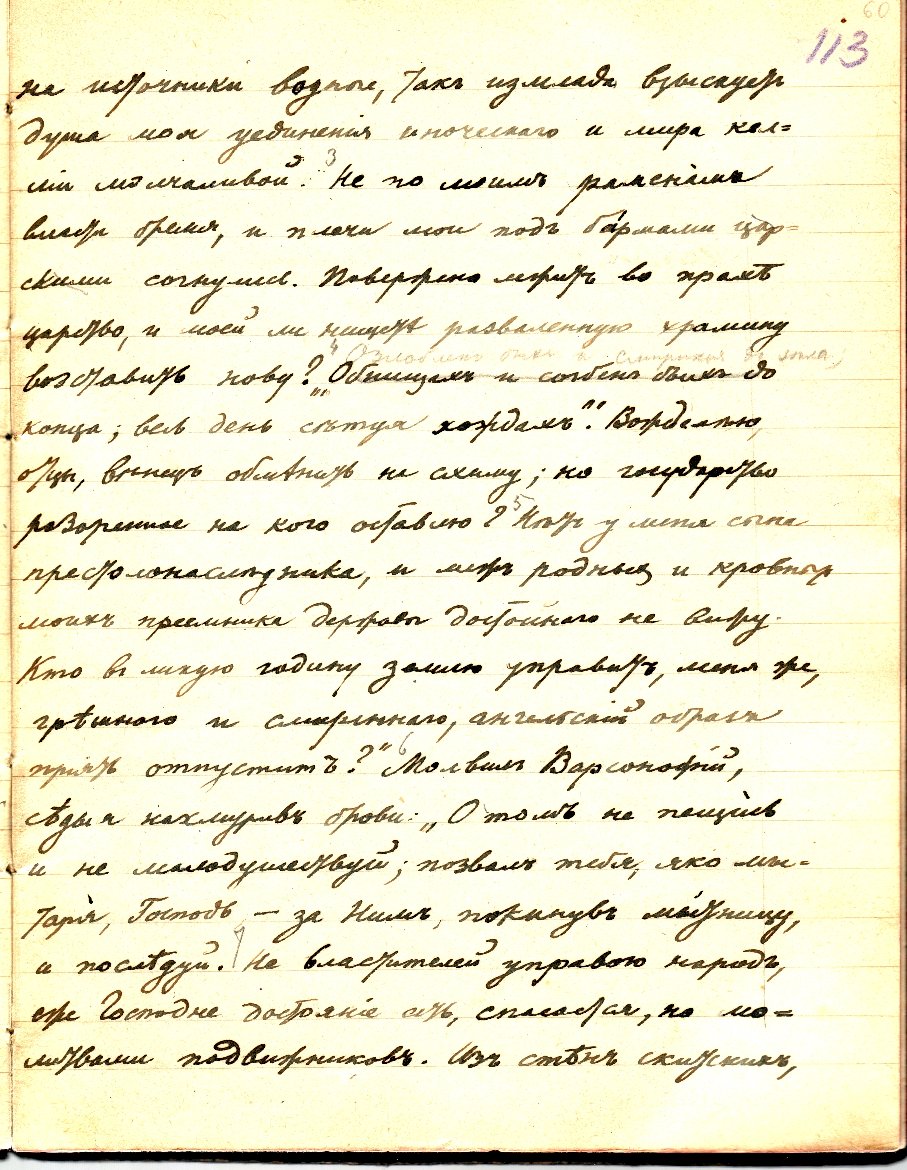 60
113
на источники водные, такъ измлада взыскуетъ
душа моя уединенія иноческаго и мира кел=
ліи молчаливой. 3 Не по моимъ раменамъ
власти бремя, и плечи мои подъ бармами цар=
скими согнулись. Повержено лежитъ во прахѣ
царство, и моей ли нищетѣ разваленную храмину
4 Озлобленъ быхъ и смирихся до зѣла;
возставить нову? „Обнищахъ и согбенъ быхъ до
конца; весь день сѣтуя хождахъ". Вожделѣю,
отцы, вѣнецъ обмѣнить на схиму; но государство
разоренное на кого оставлю? 5 Нѣтъ у меня сына
престолонаслѣдника, и межъ родныхъ и кровныхъ
моихъ преемника державы достойнаго не вижу.
Кто въ лихую годину землю управитъ, меня же,
грѣшнаго и смиреннаго, ангельскій образъ
пріять отпуститъ?" 6 Молвилъ Варсонофій,
сѣдыя нахмуривъ брови: „О томъ не пещись
и не малодушествуй; позвалъ тебя, яко мы=
таря, Господь, — за Нимъ, покинувъ мытницу,
и послѣдуй. 7 Не властителей управою народъ,
иже Господне достояніе есть, спасается, но мо=
литвами подвижниковъ. Изъ стѣнъ скитскихъ,